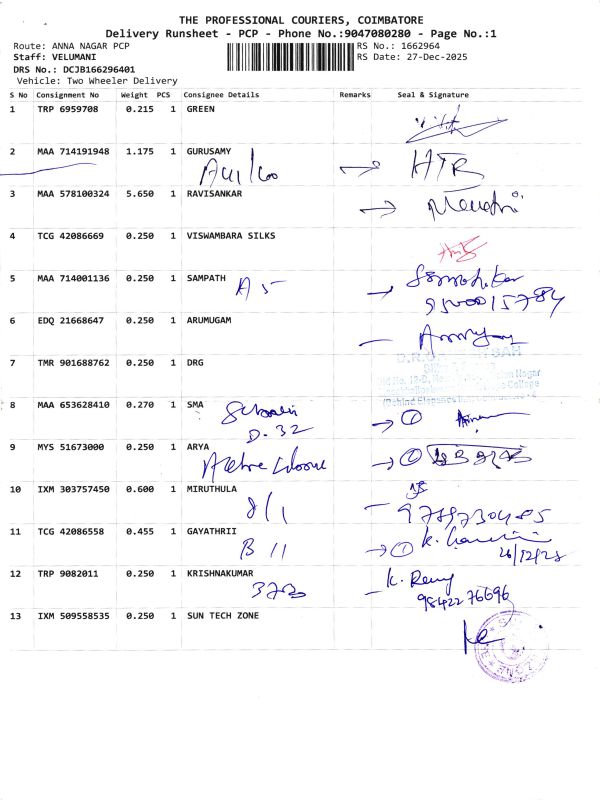 THE PROFESSIONAL COURIERS, COIMBATORE
Delivery Runsheet - PCP - Phone No.:9047080280 - Page No.:1
Route: ANNA NAGAR PCP
RS No.: 1662964
Staff: VELUMANI
RS Date: 27-Dec-2025
DRS No.: DCJB166296401
Vehicle: Two Wheeler Delivery
S No Consignment No Weight PCS Consignee Details Remarks Seal & Signature
1 TRP 6959708 0.215 1 GREEN
2 MAA 714191948 1.175 1 GURUSAMY
3 MAA 578100324 5.650 1 RAVISANKAR
4 TCG 42086669 0.250 1 VISWAMBARA SILKS
5 MAA 714001136 0.250 1 SAMPATH
A 5
6 EDQ 21668647 0.250 1 ARUMUGAM
7 TMR 901688762 0.250 1 DRG
8 MAA 653628410 0.270 1 SMA
D-32
9 MYS 51673000 0.250 1 ARYA
10 IXM 303757450 0.600 1 MIRUTHULA
8/1
11 TCG 42086558 0.455 1 GAYATHRII
B 11
12 TRP 9082011 0.250 1 KRISHNAKUMAR
9842276696
13 IXM 509558535 0.250 1 SUN TECH ZONE